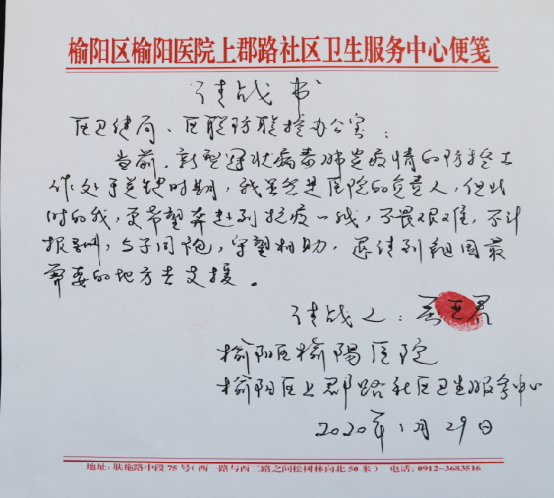 榆阳区榆阳医院上郡路社区卫生服务中心便笺
请战书
区卫健局、区联防联控办公室：
当前，新型冠状病毒肺炎疫情的防控工
作处于关键时期，我虽然是医院的负责人，但此
时的我，更希望奔赴到抗疫一线，不畏艰难，不计
报酬，与子同袍，守望相助，愿请到祖国最
需要的地方去支援。
请战人：
榆阳区榆陽医院
榆阳区上郡路社区卫生服务中心
2020年1月29日
地址：肤施路中段75号(西一路与西二路之间松树林向北50米) 电话：0912-3683516